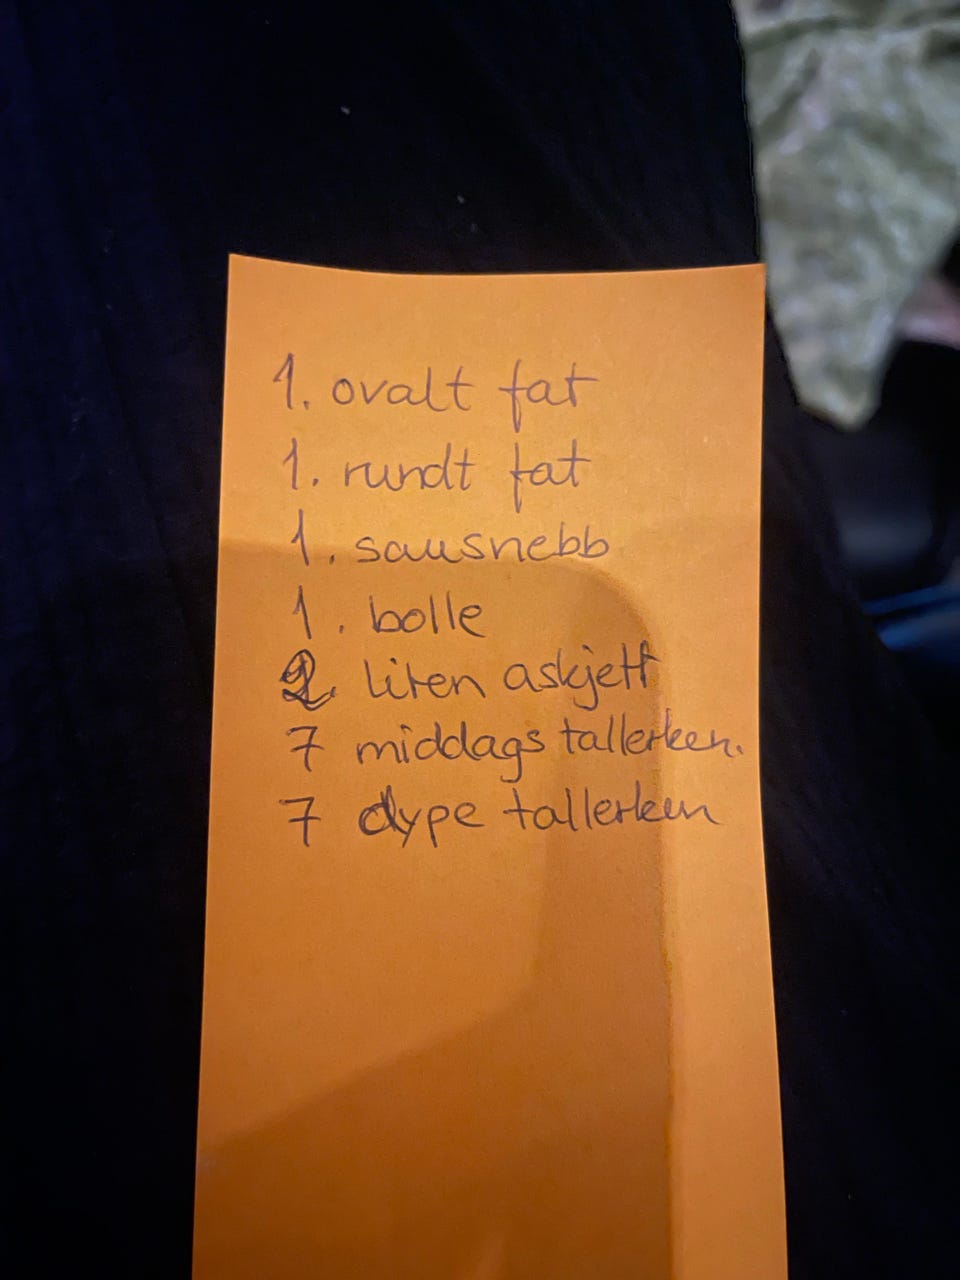 1. ovalt fat
1. rundt fat
1. sausnebb
1. bolle
2. liten askjett
7 middags tallerken.
7 dype tallerken